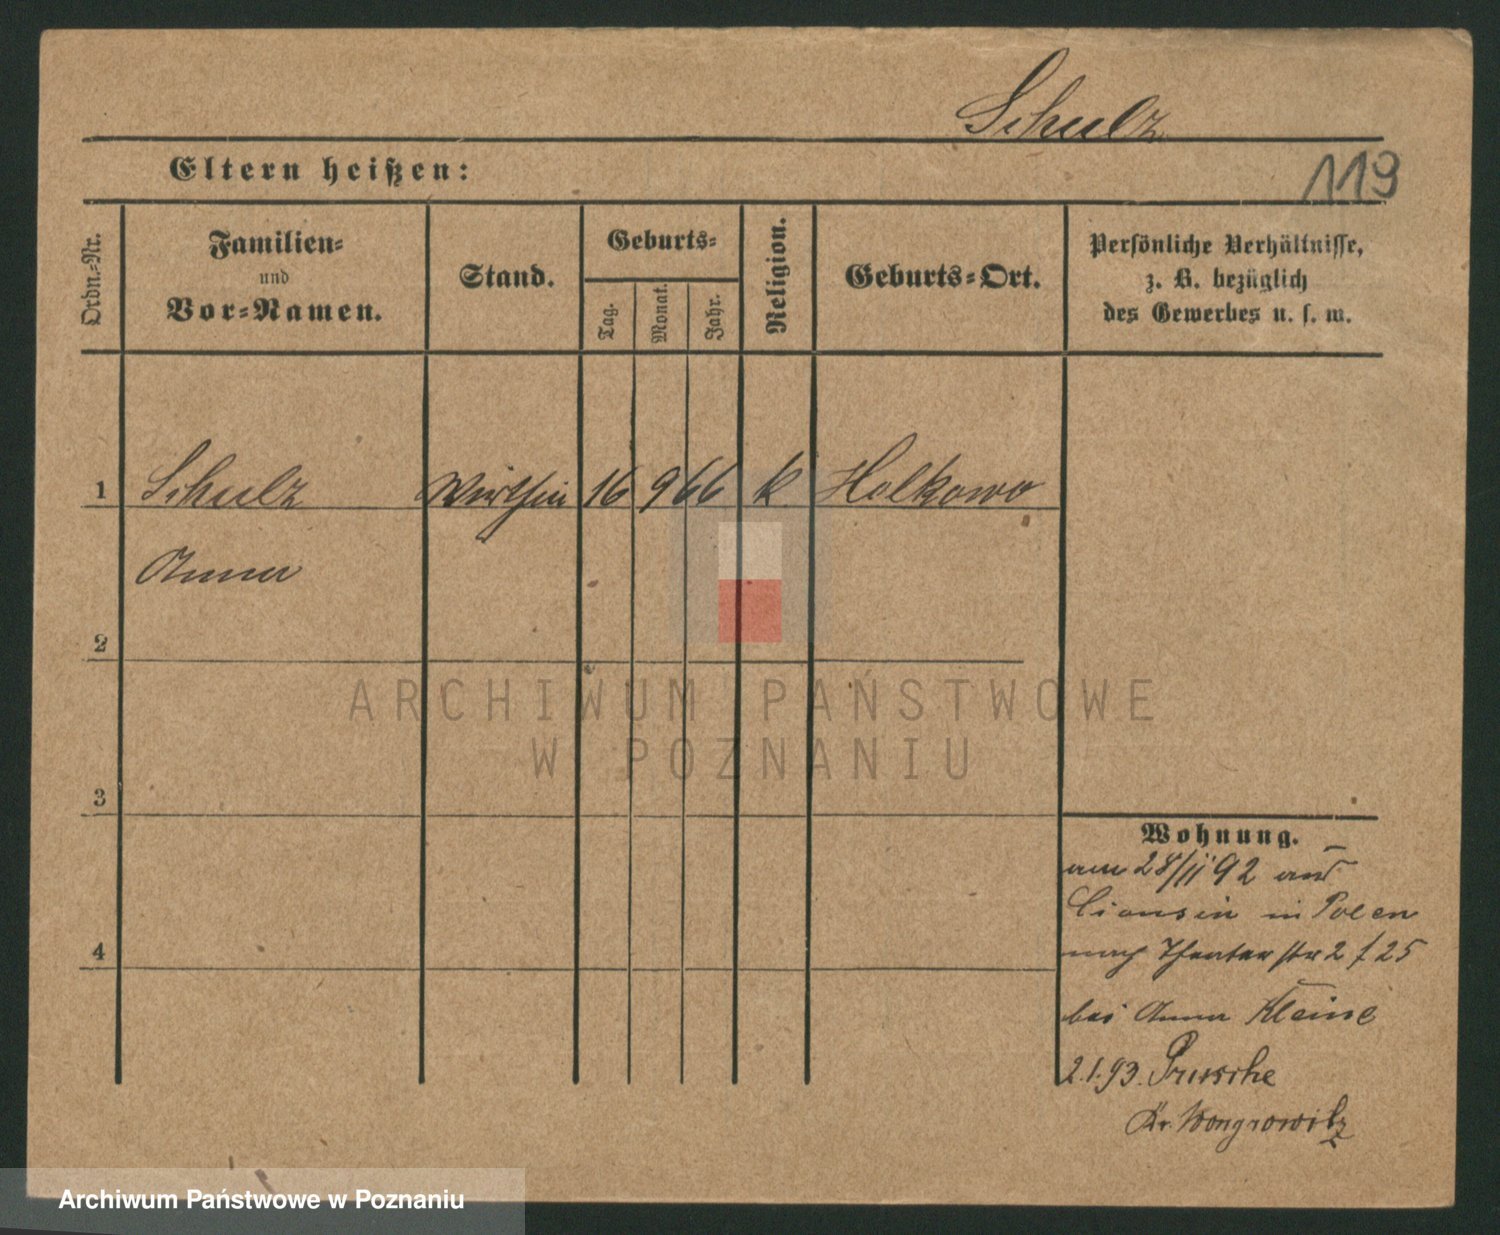 Schulz
119
Eltern heißen:
Ordn.-Nr.
Familien-
und
Vor-Namen.
Stand.
Geburts-
Tag.
Monat.
Jahr.
Religion.
Geburts-Ort.
Persönliche Verhältnisse,
z. B. bezüglich
des Gewerbes u. s. w.
1 Schulz Wirthin 16 9 66 k Holkowo
Anna
2
3
4
Wohnung.
am 28/11 92 aus
in Polen
nach Theaterstr 2 f 25
bei Anna Kleine
2.1.93. Prusche
Kr. Wongrowitz
ARCHIWUM PAŃSTWOWE
W POZNANIU
Archiwum Państwowe w Poznaniu